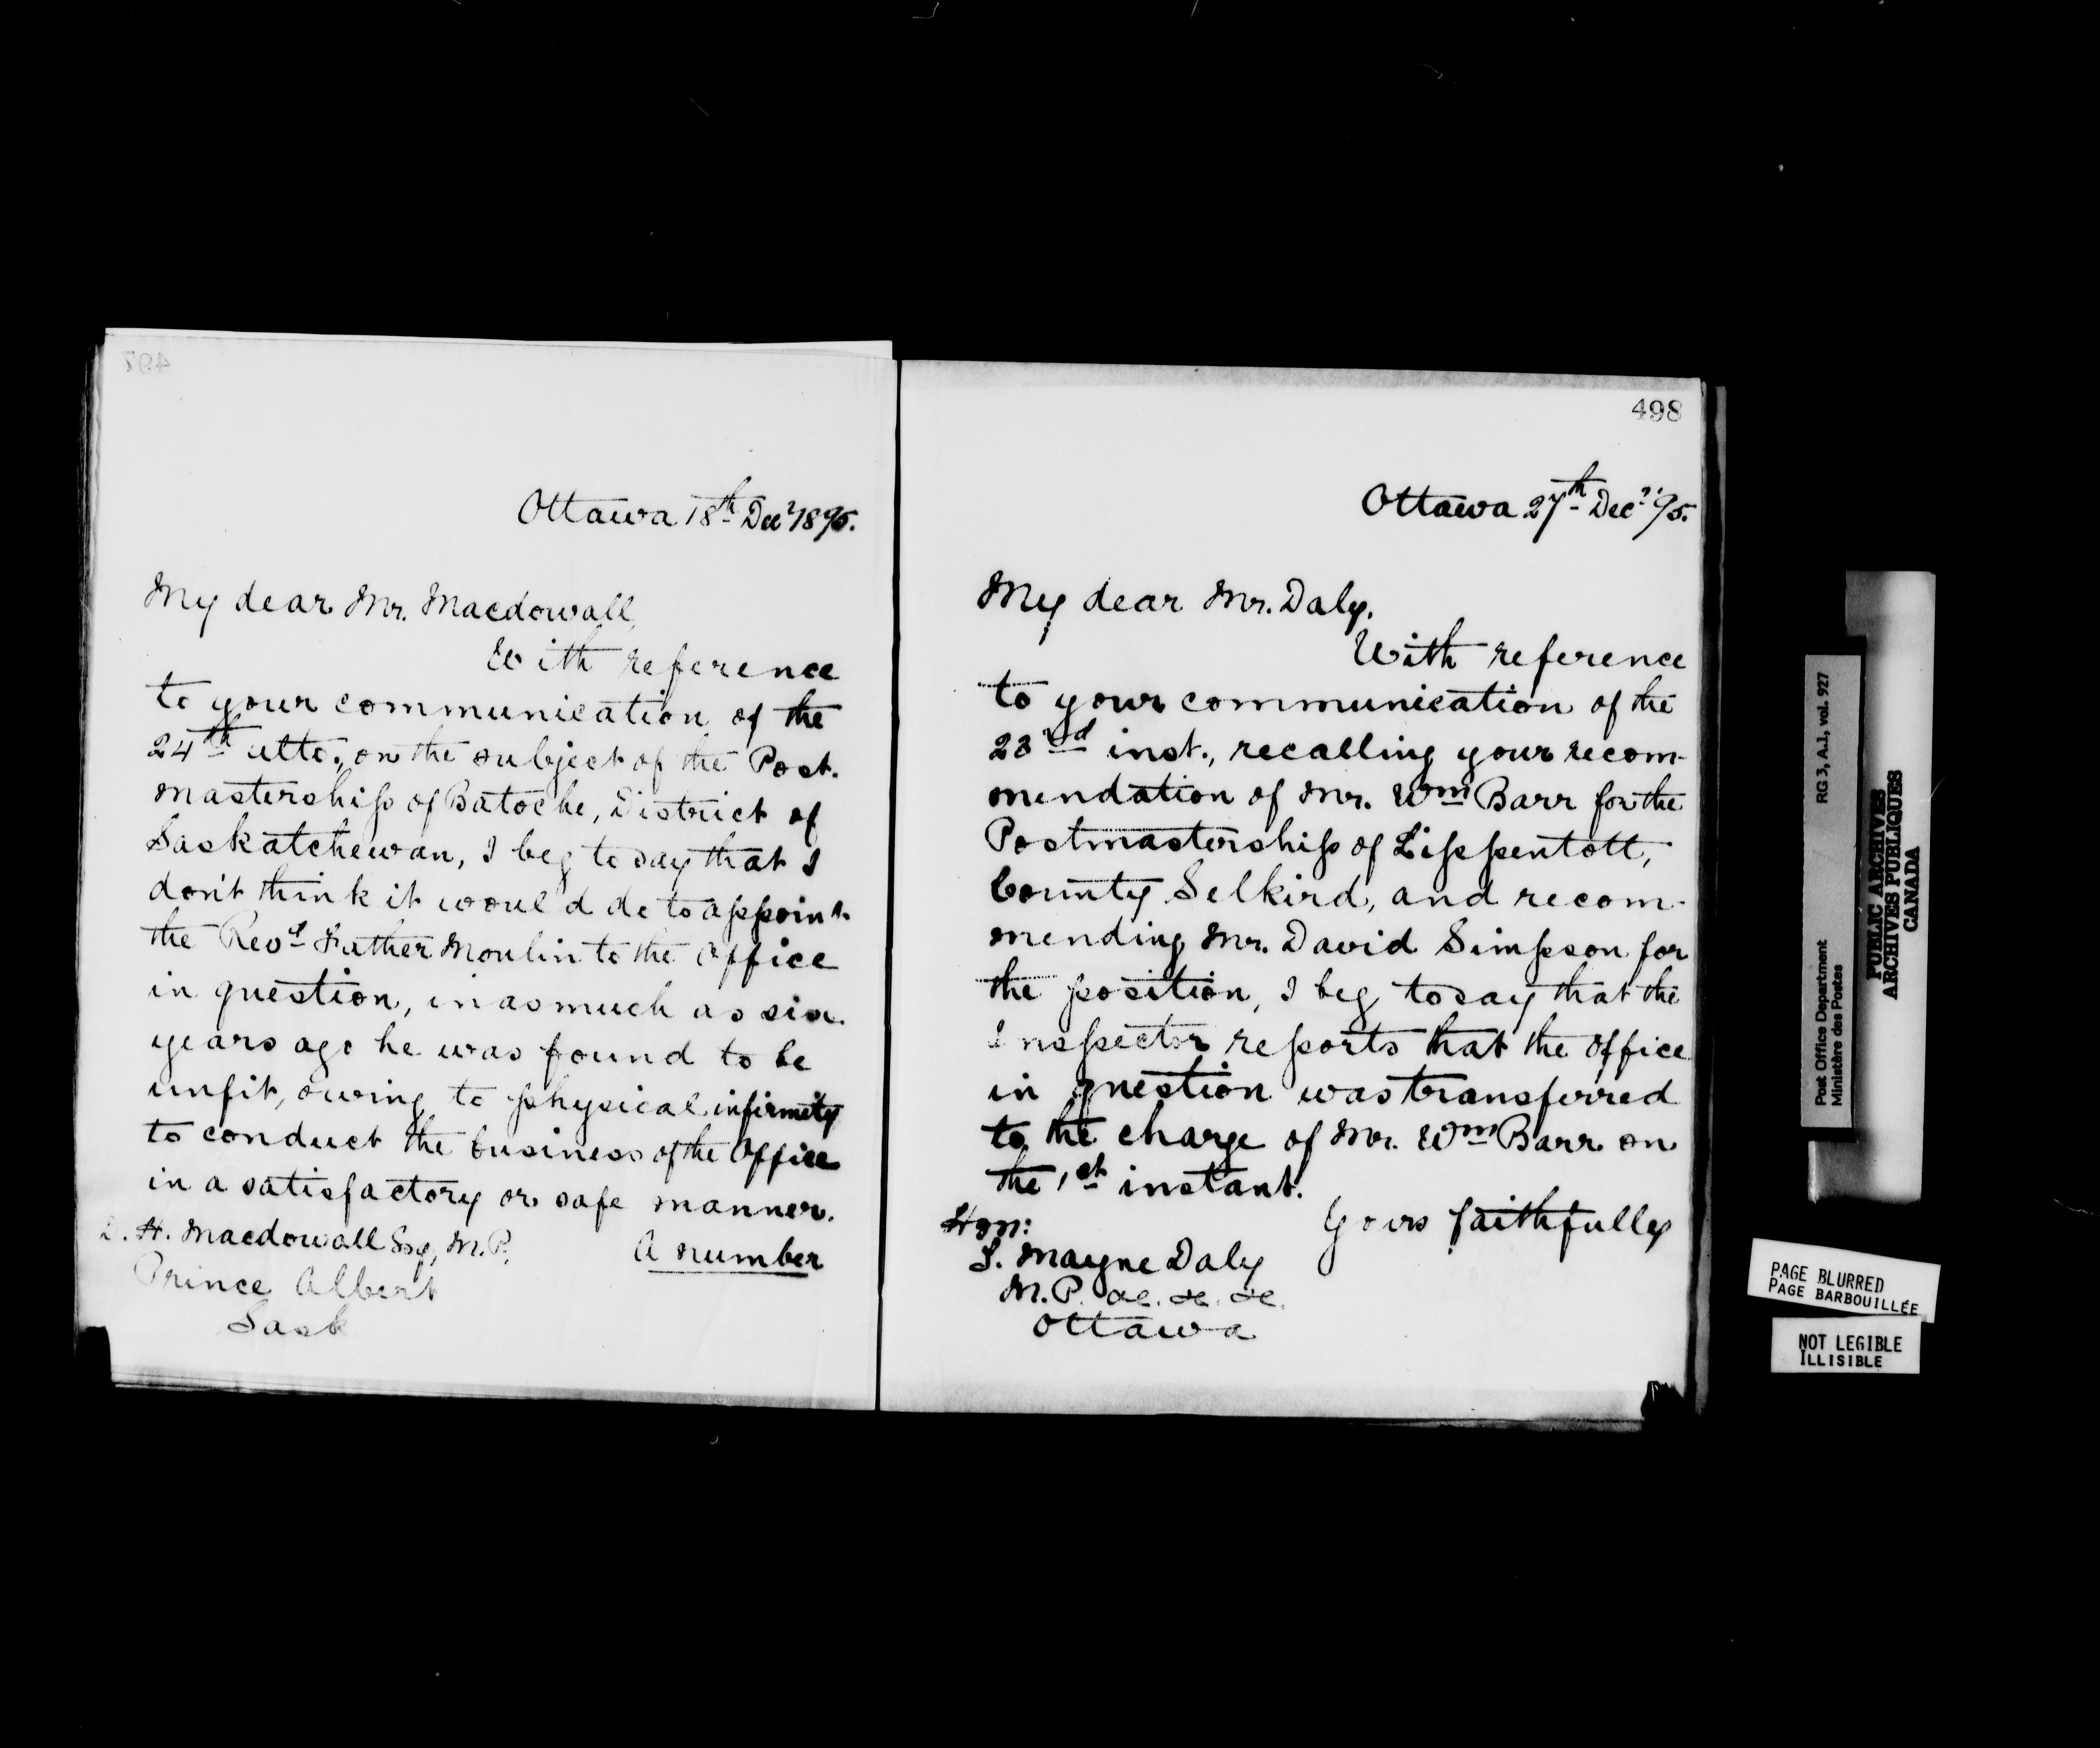 497
Ottawa 18th Decr 1895.
My dear Mr. Macdowall,
With reference
to your communication of the
24th ulto., on the subject of the Post-
mastership of Batoche, District of
Saskatchewan, I beg to say that I
don't think it would do to appoint
the Revd Father Moulin to the Office
in question, in as much as six
years ago he was found to be
unfit, owing to physical infirmity
to conduct the business of the Office
in a satisfactory or safe manner.
D. H. Macdowall Esq, M.P.
A number
Prince Albert
Sask
498
Ottawa 27th Decr '95.
My dear Mr. Daly,
With reference
to your communication of the
23rd inst., recalling your recom-
mendation of Mr. Wm Barr for the
Postmastership of Lippentott,
County Selkird, and recom-
mending Mr. David Simpson for
the position, I beg to say that the
Inspector reports that the office
in question was transferred
to the charge of Mr. Wm Barr on
the 1st instant.
Yours faithfully
Hon:
T. Mayne Daly
M.P. &c. &c. &c.
Ottawa
Post Office Department RG 3, A.1, vol. 927
Ministère des Postes
PUBLIC ARCHIVES
ARCHIVES PUBLIQUES
CANADA
PAGE BLURRED
PAGE BARBOUILLÉE
NOT LEGIBLE
ILLISIBLE